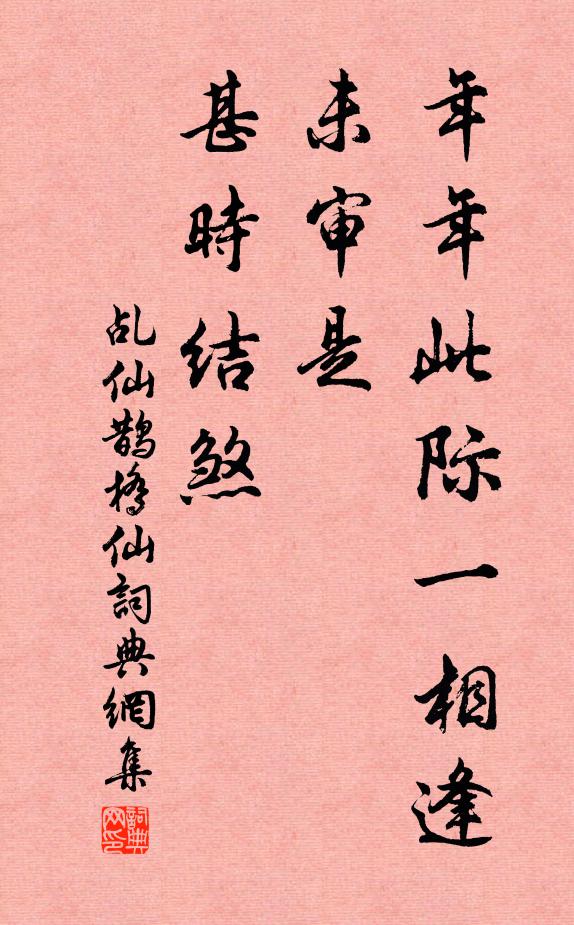 年年此际一相逢
未审是
甚時结煞
乩仙鵲橋仙詞典網集
詞典网印